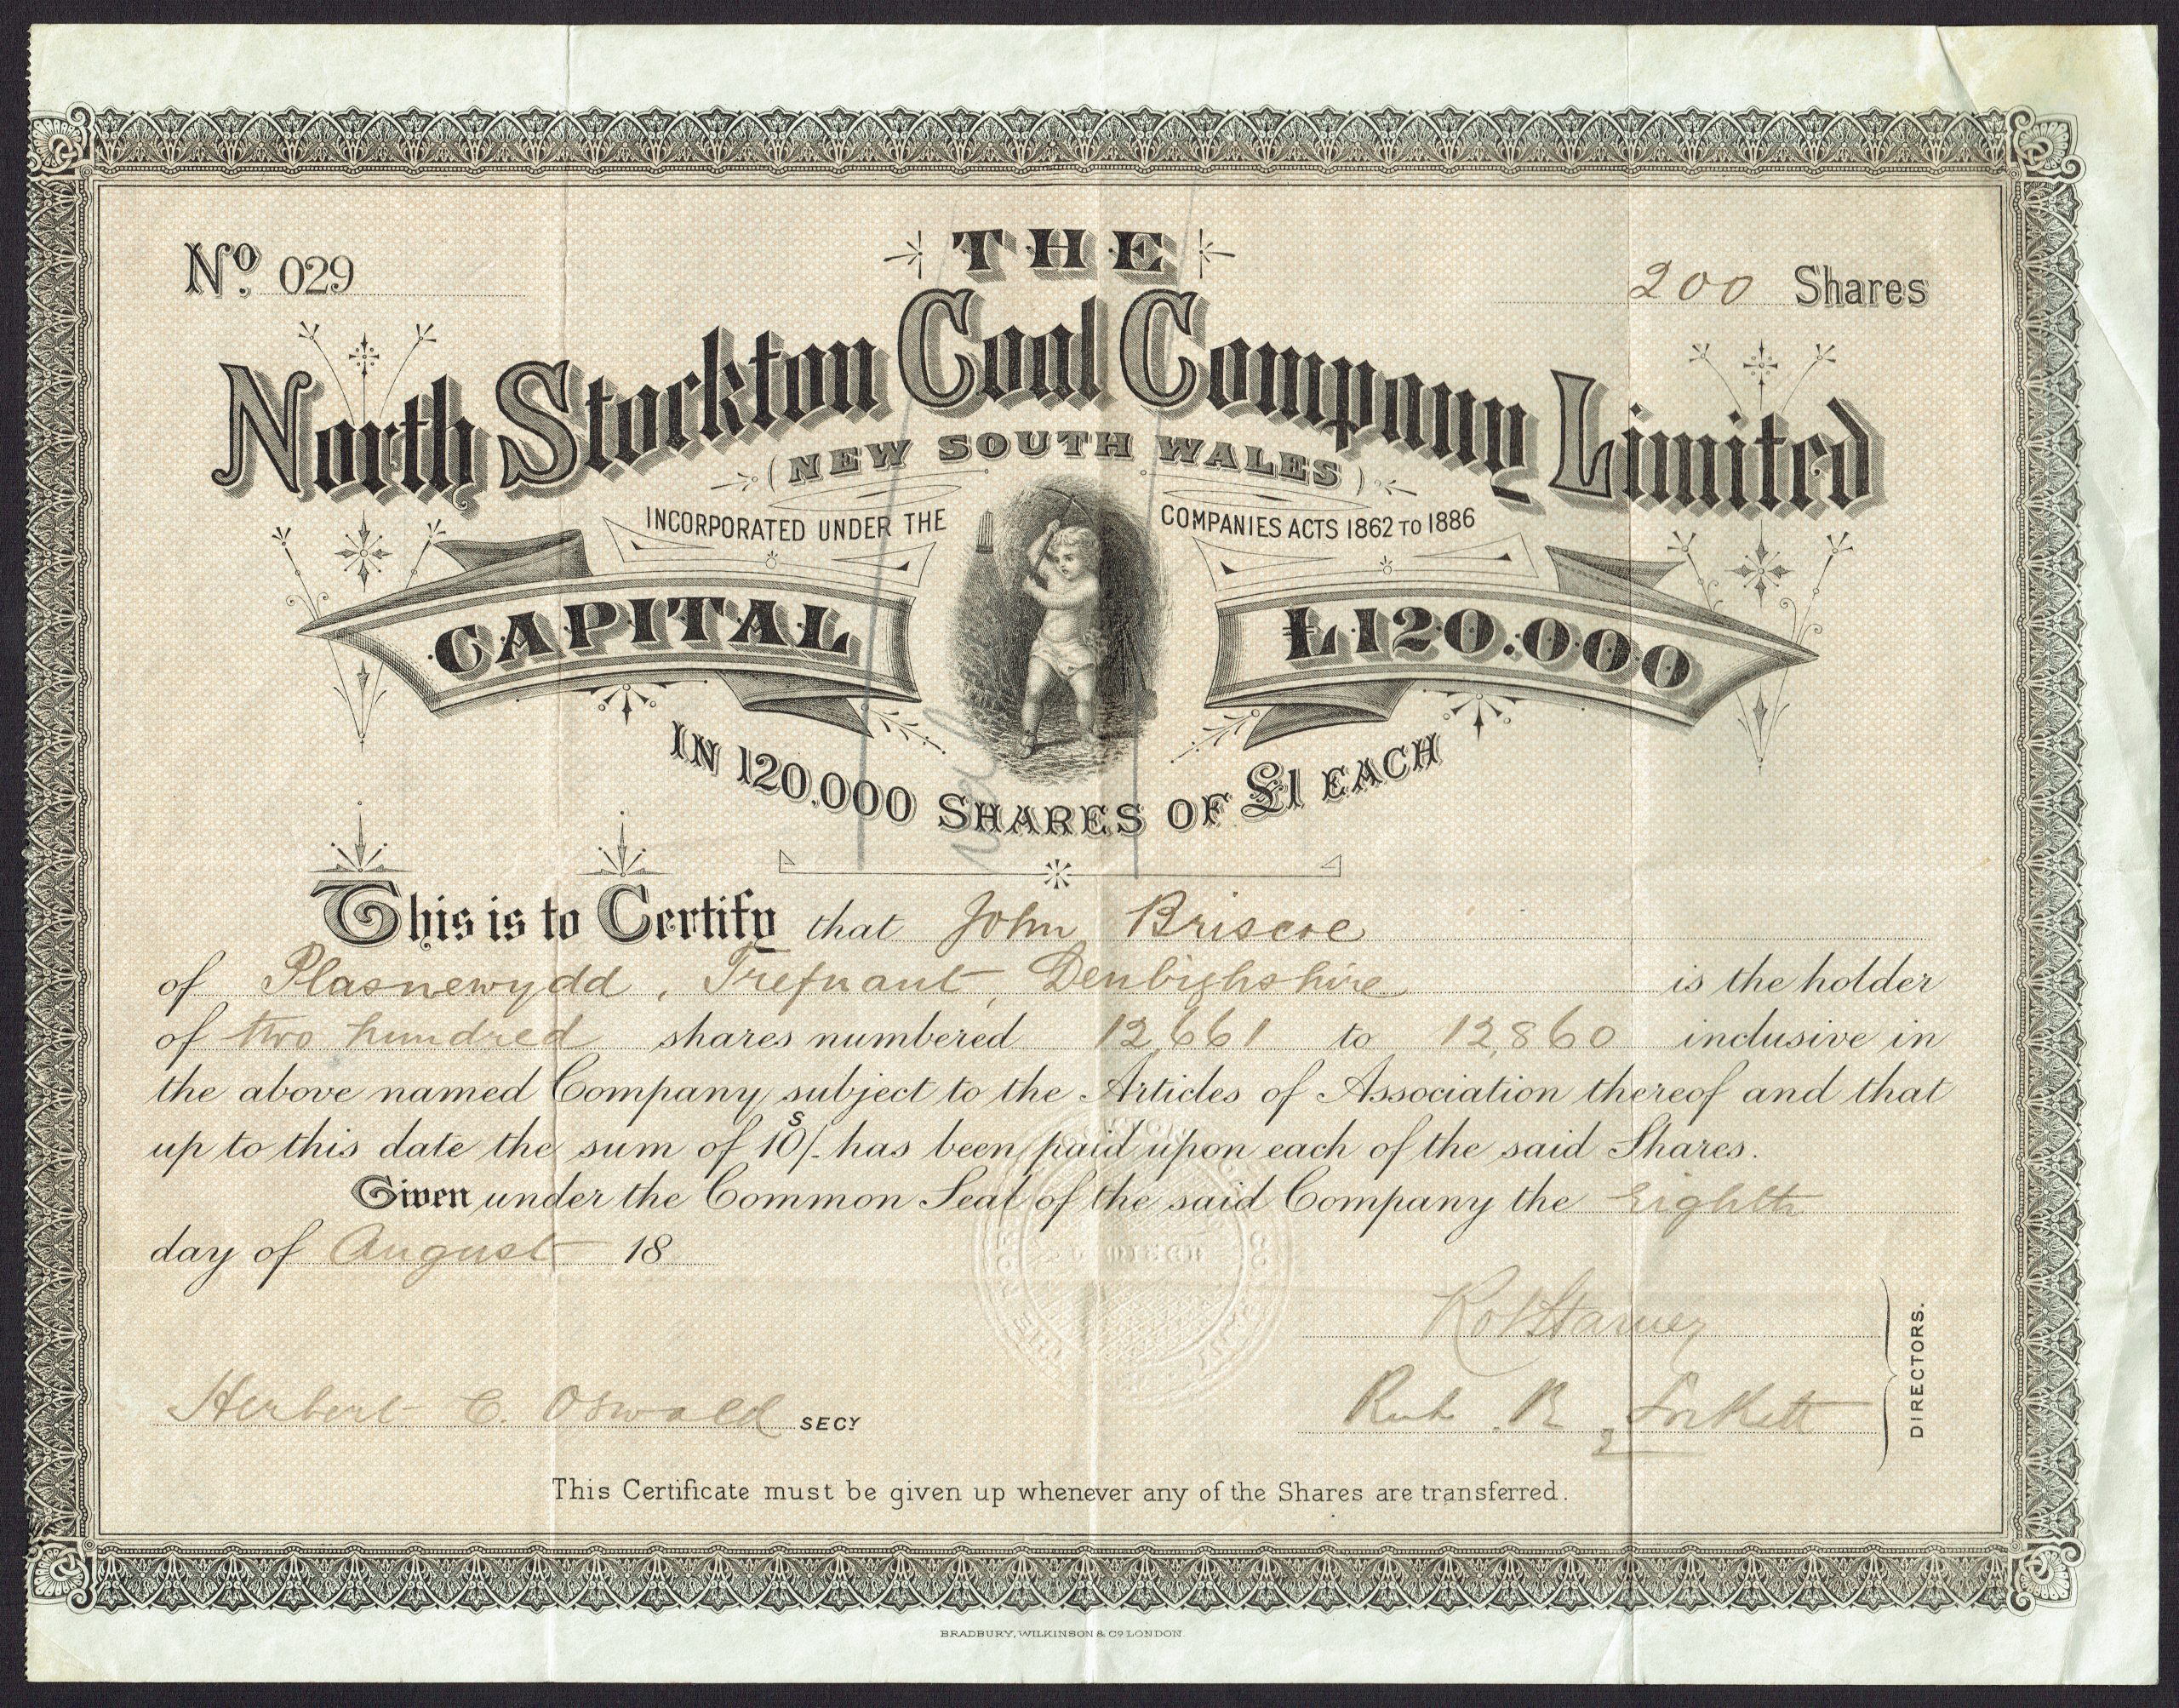 No. 029
200 Shares
THE
North Stockton Coal Company Limited
(NEW SOUTH WALES)
INCORPORATED UNDER THE COMPANIES ACTS 1862 TO 1886
CAPITAL £120.000
IN 120.000 SHARES OF £1 EACH
This is to Certify that John Briscoe
of Plasnewydd, Trefnant, Denbighshire is the holder
of two hundred shares numbered 12,661 to 12,860 inclusive in
the above named Company, subject to the Articles of Association thereof and that
up to this date the sum of 10s/- has been paid upon each of the said Shares.
Given under the Common Seal of the said Company the Eighth
day of August 18
Herbert C. Oswald SECY
DIRECTORS.
This Certificate must be given up whenever any of the Shares are transferred.
BRADBURY, WILKINSON & Co LONDON.